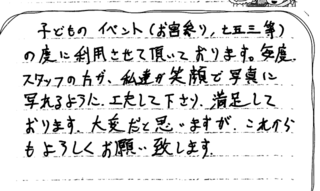 子どもの イベント(お宮参り,七五三等)
の度に利用させて頂いております。毎度、
スタッフの方が、私達が笑顔で写真に
写れるように、工夫して下さり、満足して
おります。大変だと思いますが、これから
もよろしくお願い致します。